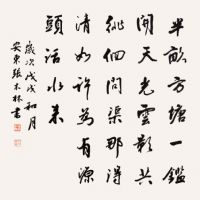 半畝方塘一鑑
開天光雲影共
徘徊問渠那得
清如許為有源
頭活水来
歲次戊戌和月
安東張木林書